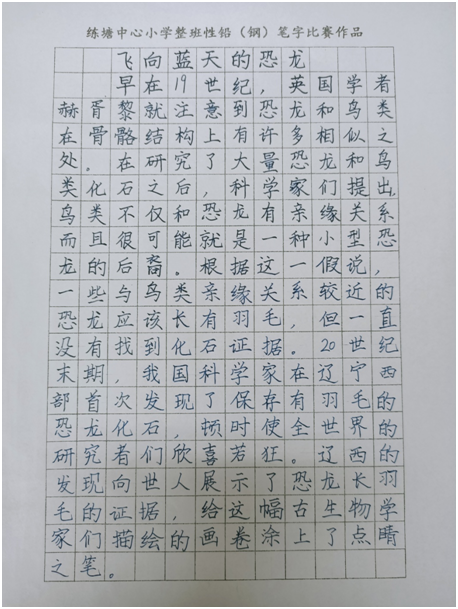 练塘中心小学整班性铅（钢）笔字比赛作品
飞向蓝天的恐龙
早在19世纪，英国学者
赫胥黎就注意到恐龙和鸟类
在骨骼结构上有许多相似之
处。在研究了大量恐龙和鸟
类化石之后，科学家们提出，
鸟类不仅和恐龙有亲缘关系
而且很可能就是一种小型恐
龙的后裔。根据这一假说，
一些与鸟类亲缘关系较近的
恐龙应该长有羽毛，但一直
没有找到化石证据。20世纪
末期，我国科学家在辽宁西
部首次发现了保存有羽毛的
恐龙化石，顿时使全世界的
研究者们欣喜若狂。辽西的
发现向世人展示了恐龙长羽
毛的证据，给这幅古生物学
家们描绘的画卷涂上了点睛
之笔。